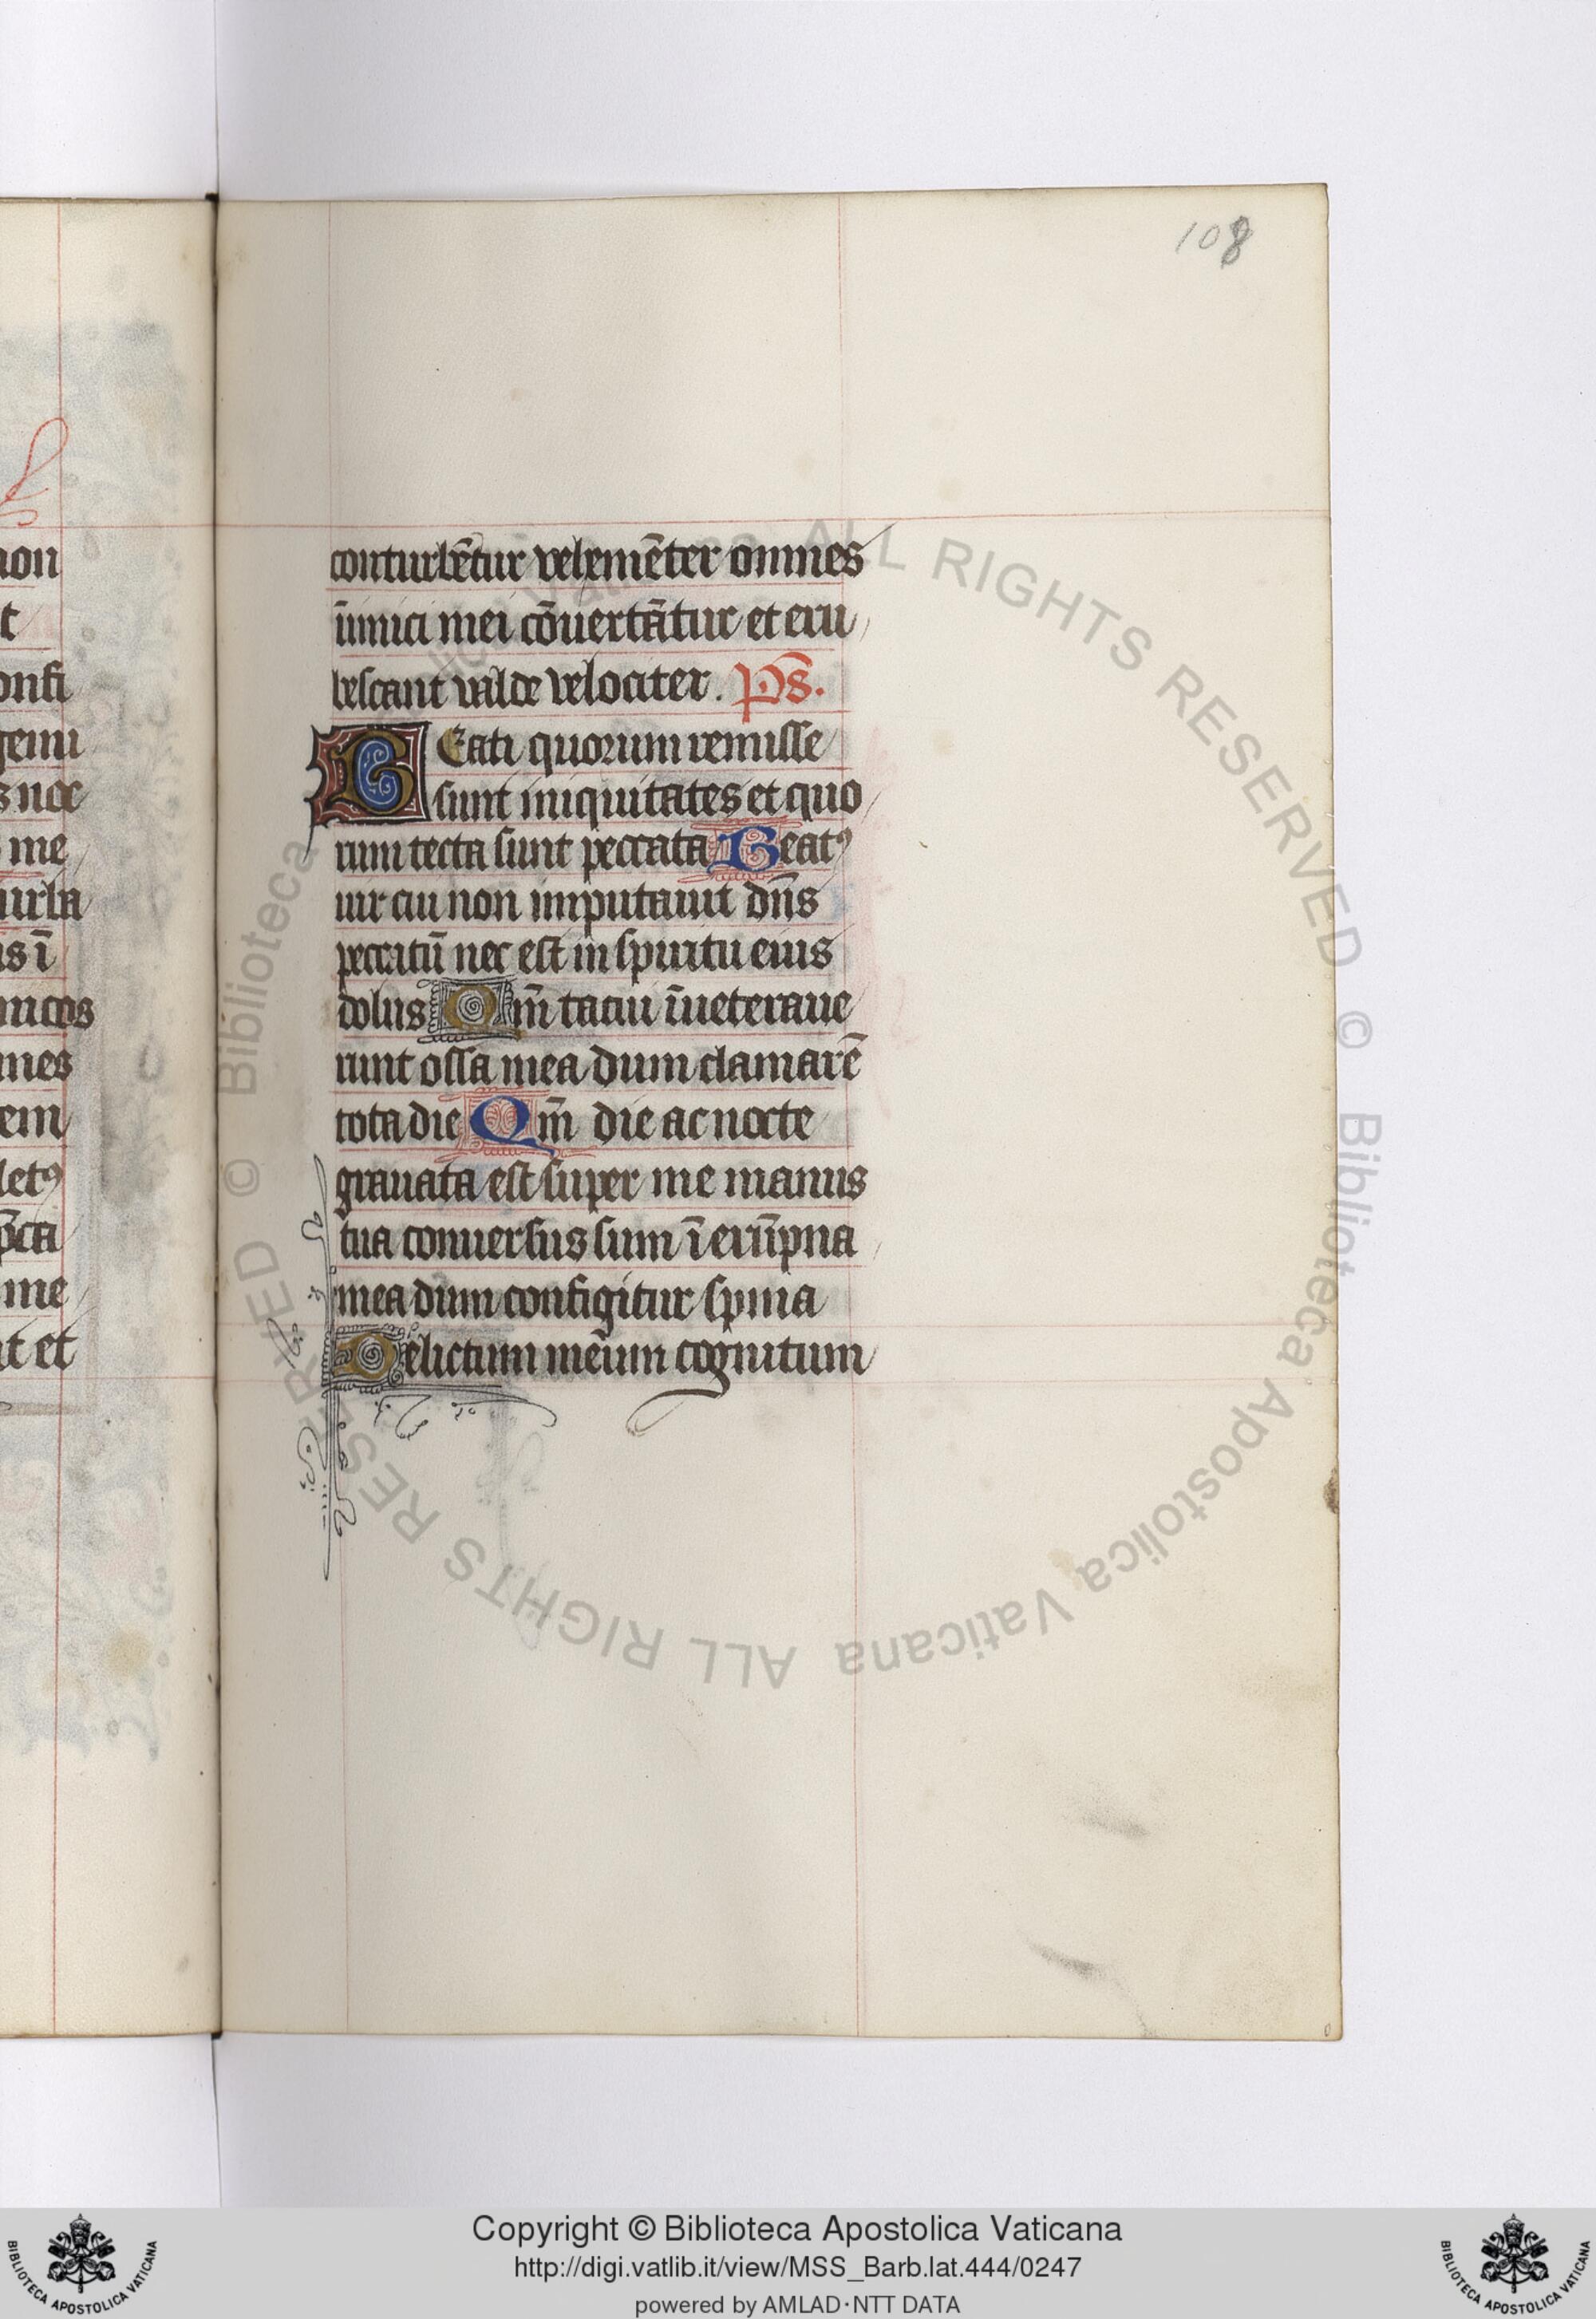 108
non
t
onfi
gemi
s noc
me
urba
us ī
micos
mes
em
letꝰ
p̄ca
me
it et
conturbētur vehemēter omnes
inimici mei cōuertātur et eru
bescant valde velociter. Ps̄.
BEati quorum remisse
sunt iniquitates et quo
rum tecta sunt peccata Beatꝰ
uir cui non imputauit dn̄s
peccatū nec est in spiritu eius
dolus Qm̄ tacui īueteraue
runt ossa mea dum clamarē
tota die Qm̄ die ac nocte
grauata est super me manus
tua conuersus sum ī erūpna
mea dum configitur spina
Delictum meum cognitum
© Biblioteca Apostolica Vaticana ALL RIGHTS RESERVED © Biblioteca Apostolica Vaticana ALL RIGHTS RESERVED
Copyright © Biblioteca Apostolica Vaticana
http://digi.vatlib.it/view/MSS_Barb.lat.444/0247
powered by AMLAD·NTT DATA
BIBLIOTECA APOSTOLICA VATICANA
BIBLIOTECA APOSTOLICA VATICANA